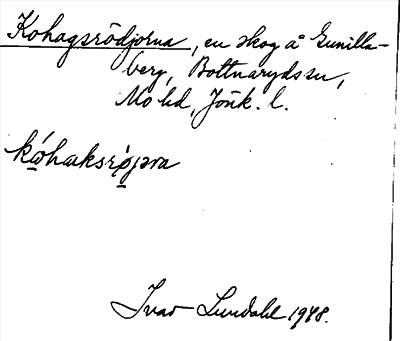 Kohagsrödjorna, en skog å Gunilla-
berg, Bottnaryds sn,
Mo hd, Jönk. l.
kóhaksrǿjɔra
Ivar Lundahl 1948.